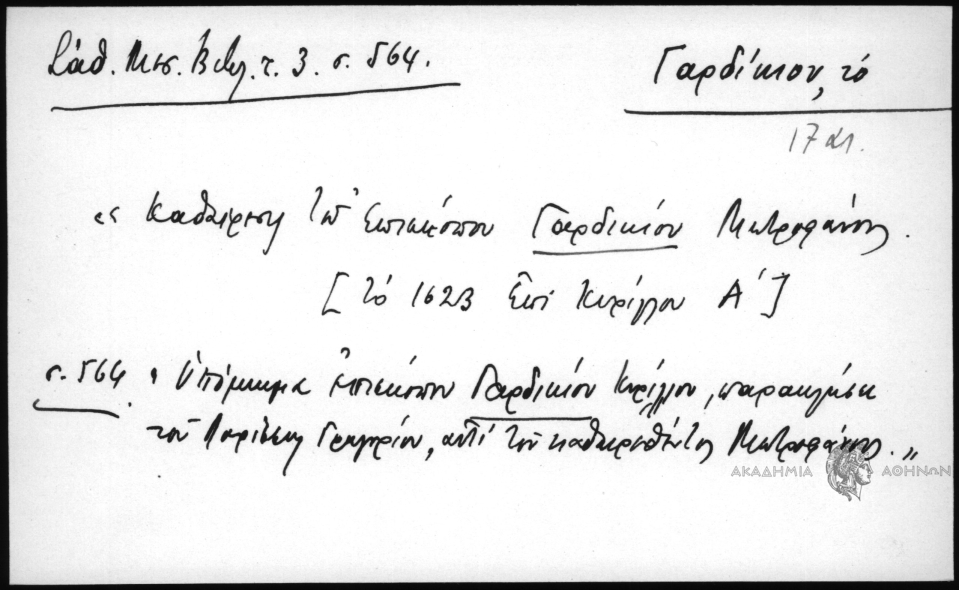 Σάθ. Μεσ. Βιβλ. τ. 3. σ. 564.
Γαρδίκιον, τό
17 αι.
"Καθαίρεσις τοῦ Ἐπισκόπου Γαρδικίου Μητροφάνους.
[τό 1623 ἐπί Κυρίλλου Α΄]
σ. 564. "Ὑπόμνημα ἐπισκόπου Γαρδικίου Κυρίλλου, παρακλήσει
τοῦ Λαρίσσης Γρηγορίου, ἀντί τοῦ καθαιρεθέντος Μητροφάνους."
ΑΚΑΔΗΜΙΑ ΑΘΗΝΩΝ